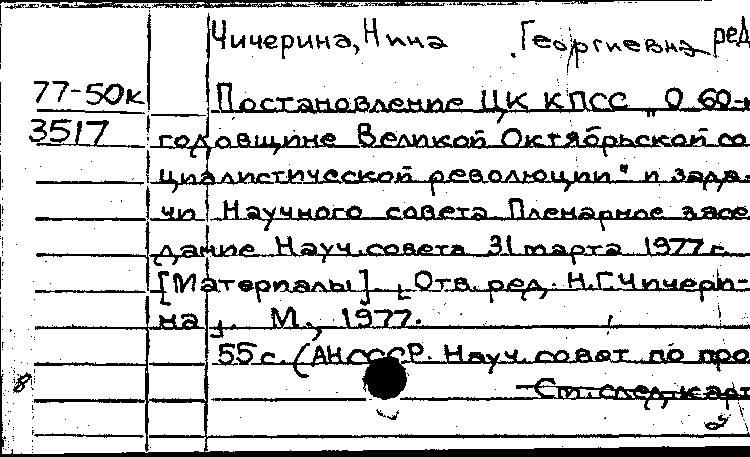 Чичерина, Нина Георгиевна ред
77-50к Постановление ЦК КПСС „О 60-
3517 годовщине Великой Октябрьской со
циалистической революции" и зада-
чи Научного совета Пленарное засе
дание Науч. совета 31 марта 1977 г.
[Материалы]. Отв. ред. Н.Г. Чичери-
на. М., 1977.
55 с. (АН СССР. Науч. совет по про
См. след. карт